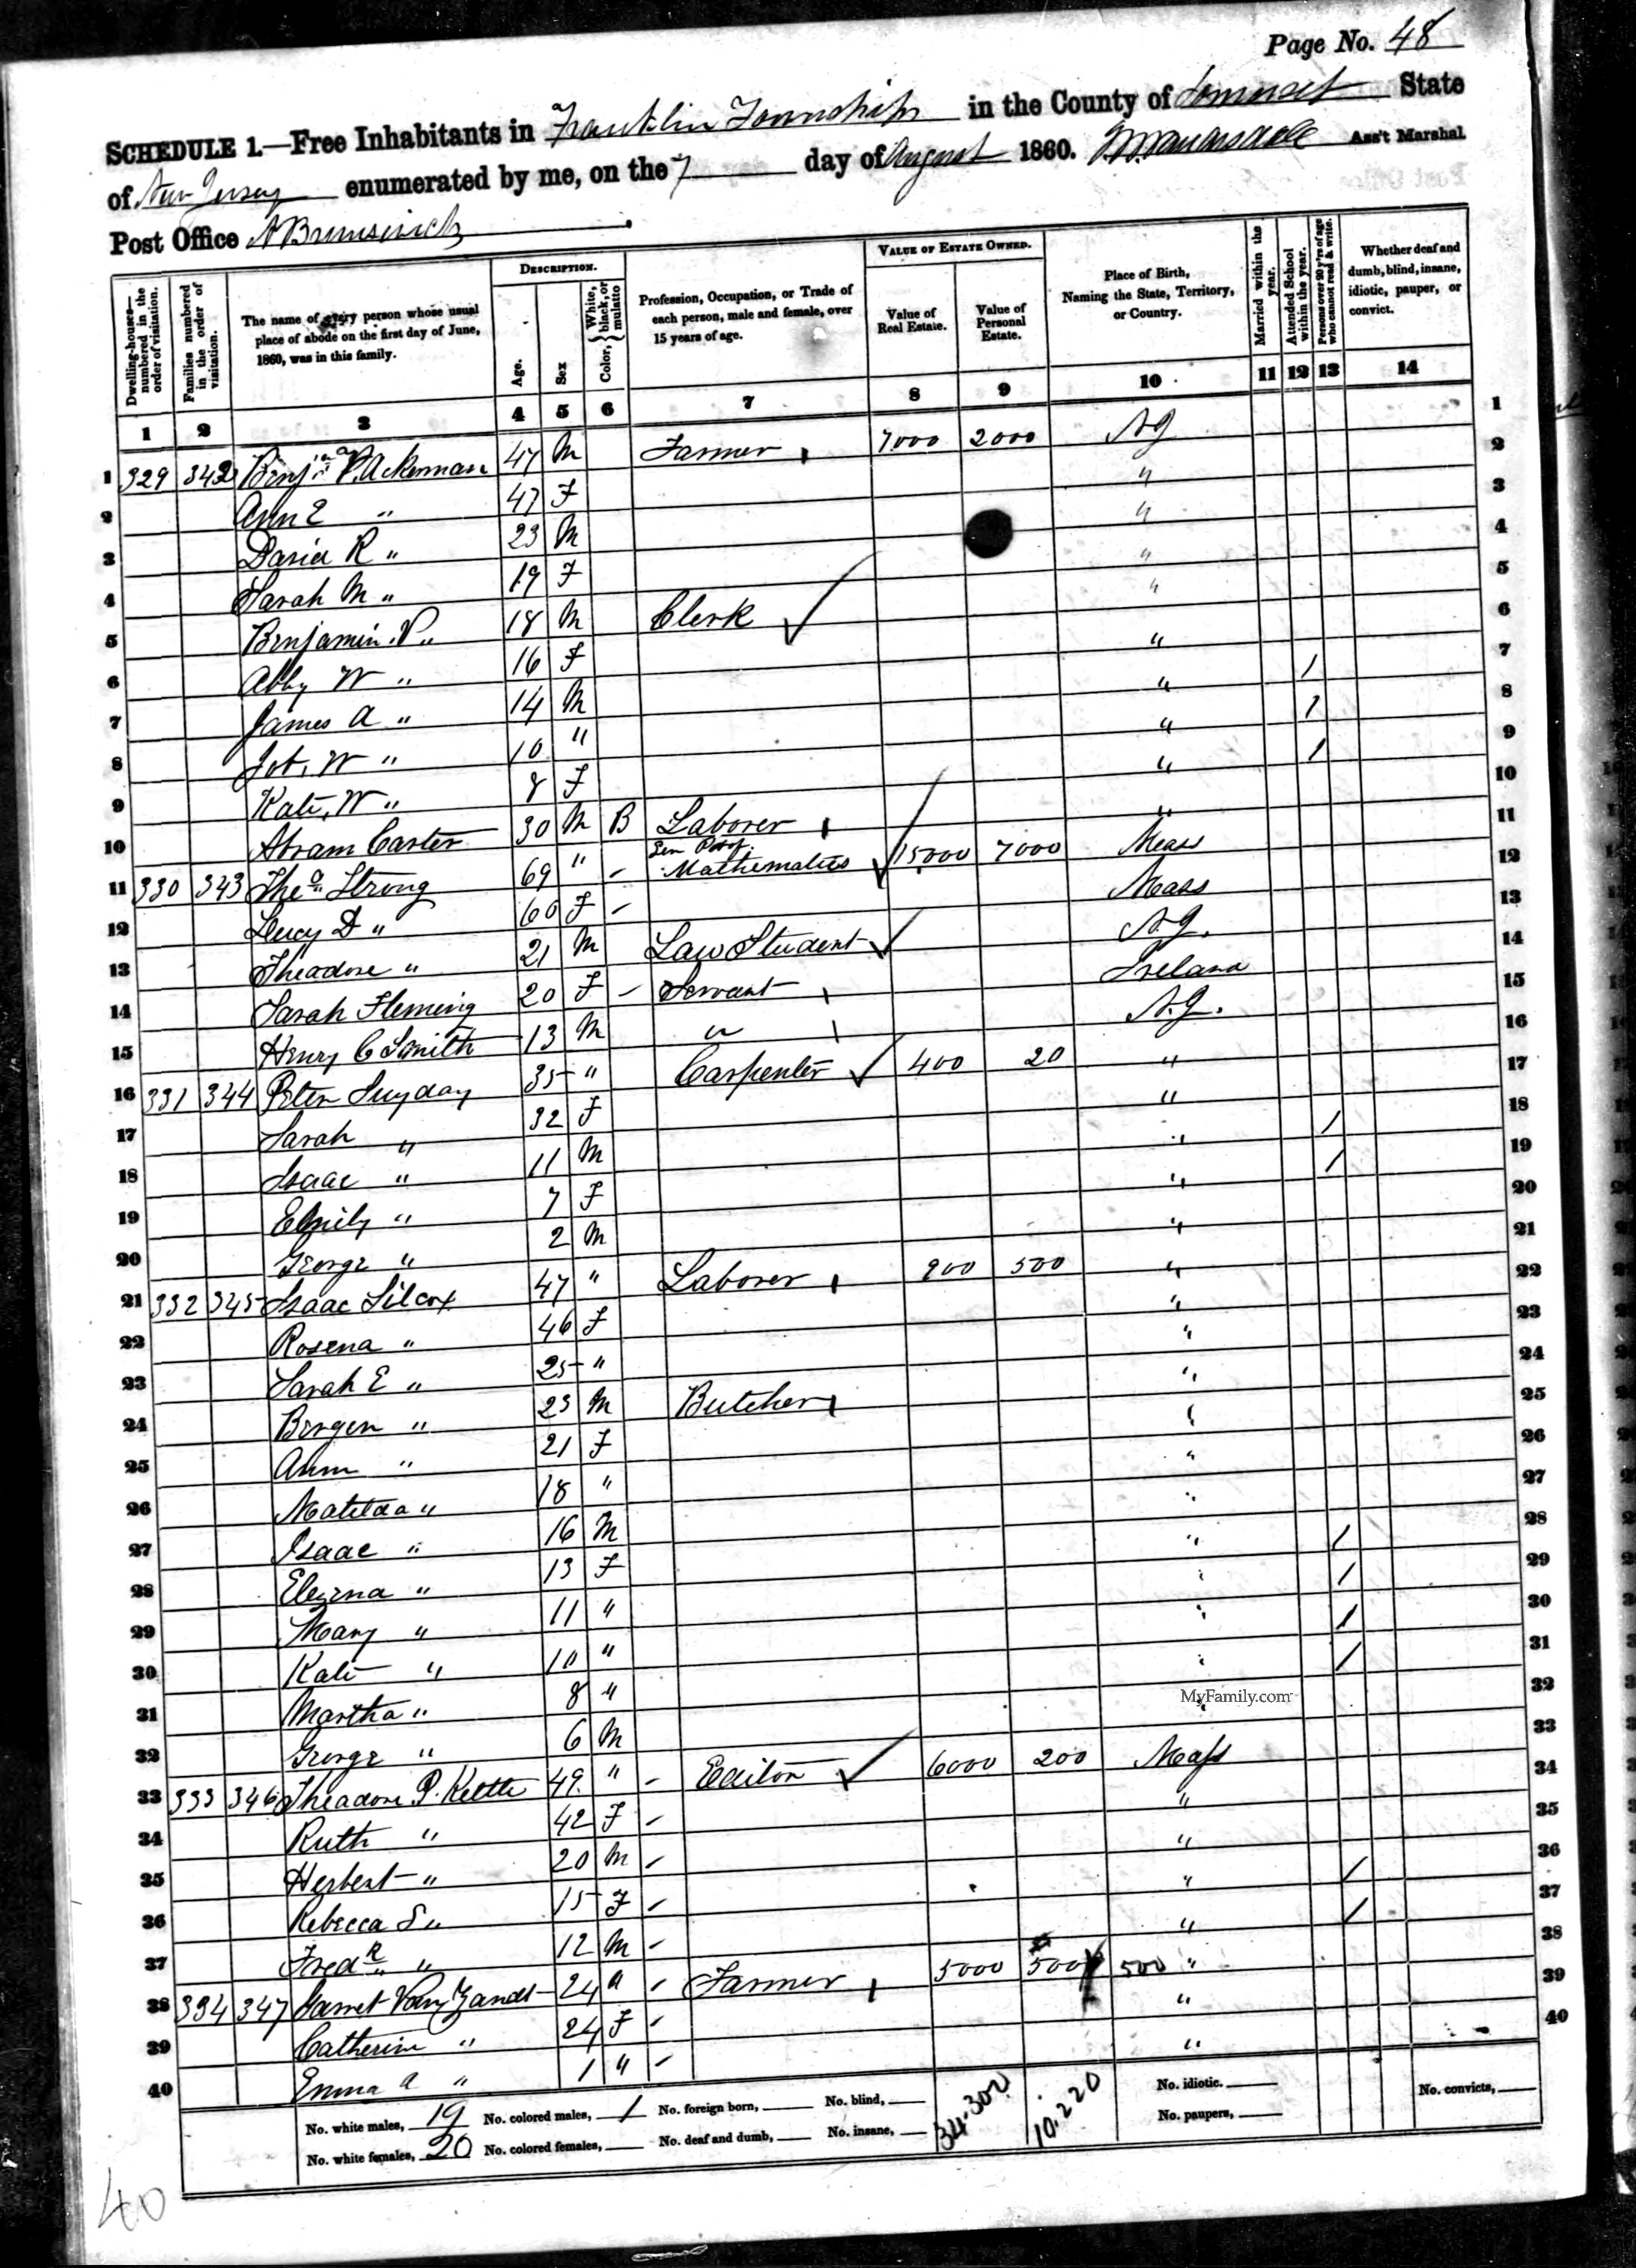 Page No. 48
SCHEDULE 1.—Free Inhabitants in Franklin Township in the County of Somerset State
of New Jersey enumerated by me, on the 7 day of August 1860. Ass't Marshal
Post Office N Brunswick
Dwelling-houses—numbered in the order of visitation. Families numbered in the order of visitation. The name of every person whose usual place of abode on the first day of June, 1860, was in this family. DESCRIPTION. Age. Sex Color, White, black, or mulatto Profession, Occupation, or Trade of each person, male and female, over 15 years of age. VALUE OF ESTATE OWNED. Value of Real Estate. Value of Personal Estate. Place of Birth, Naming the State, Territory, or Country. Married within the year. Attended School within the year. Persons over 20 y'rs of age who cannot read & write. Whether deaf and dumb, blind, insane, idiotic, pauper, or convict.
1 2 3 4 5 6 7 8 9 10 11 12 13 14
1 329 342 Benjn P. Ackerman 47 M Farmer 7000 2000 NJ 1
2 Ann E " 47 F " 2
3 David R " 23 M " 3
4 Sarah M " 19 F " 4
5 Benjamin P " 18 M Clerk " 5
6 Abby W " 16 F " 6
7 James A " 14 M " 1 7
8 Job. W " 10 " " 1 8
9 Kate. W " 8 F " 1 9
10 Abram Carter 30 M B Laborer " 10
11 330 343 Theo Strong 69 " - Sen Prof. Mathematics 15000 7000 Mass 11
12 Lucy D " 60 F - Mass 12
13 Theadore " 21 M Law Student N.J. 13
14 Sarah Fleming 20 F - Servant Ireland 14
15 Henry C Smith 13 M " N.J. 15
16 331 344 Peter Suydam 35 " Carpenter 400 20 " 16
17 Sarah " 32 F " 17
18 Isaac " 11 M " 1 18
19 Emily " 7 F " 1 19
20 George " 2 M " 20
21 332 345 Isaac Silcox 47 " Laborer 900 500 " 21
22 Rosena " 46 F " 22
23 Sarah E " 25 " " 23
24 Bergen " 23 M Butcher " 24
25 Ann " 21 F " 25
26 Matilda " 18 " " 26
27 Isaac " 16 M " 27
28 13 F " 1 28
29 Mary " 11 " " 1 29
30 Kate " 10 " " 1 30
31 Martha " 8 " " 1 31
32 George " 6 M " 32
33 333 346 Theadore P. Kettle 49 " - Editor 6000 200 Mass 33
34 Ruth " 42 F - " 34
35 Herbert " 20 M - " 35
36 Rebecca S " 15 F - " 1 36
37 Fredk " 12 M - " 1 37
38 334 347 Garret Van Zandt 24 " - Farmer 5000 500 500 " 38
39 Catherine " 24 F - " 39
40 Emma A " 1 " - " 40
MyFamily.com
No. white males, 19 No. colored males, 1 No. foreign born, No. blind, 34.300 10.220 No. idiotic. No. convicts,
No. white females, 20 No. colored females, No. deaf and dumb, No. insane, No. paupers,
40